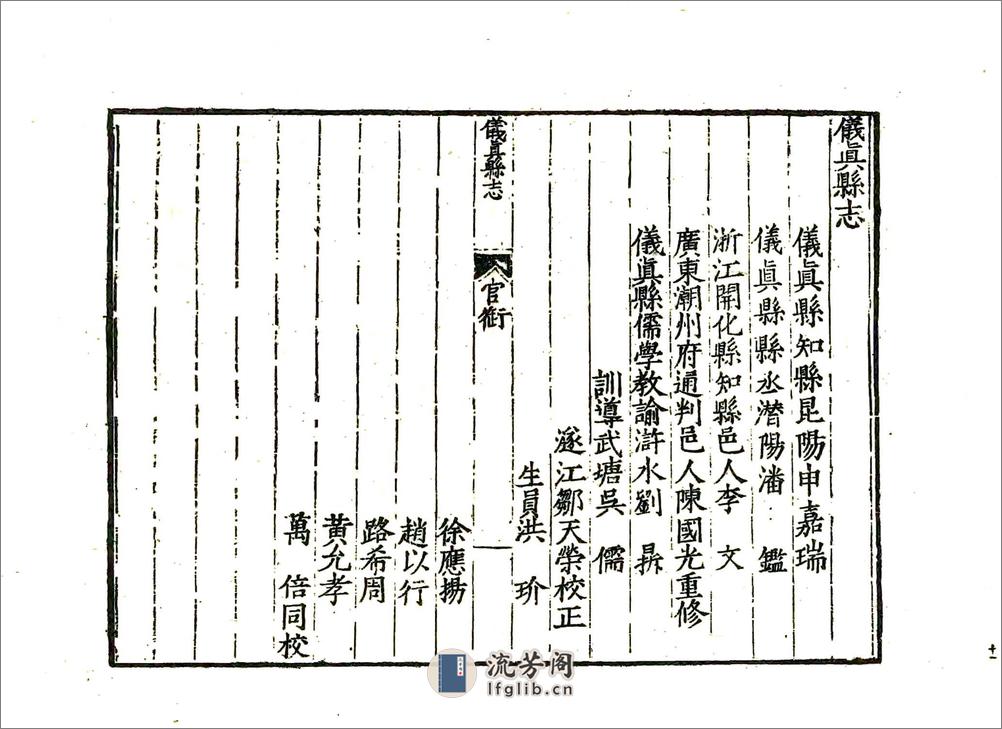 儀真縣志
儀真縣知縣昆陽申嘉瑞
儀真縣縣丞潛陽潘 鑑
浙江開化縣知縣邑人李 文
廣東潮州府通判邑人陳國光重修
儀真縣儒學教諭滸水劉
訓導武塘吳 儒
遂江鄒天榮校正
生員洪 玠
儀真縣志
官銜
一
徐應揚
趙以行
路希周
黃允孝
萬 倍同校
十一
流芳阁
lfglib.cn